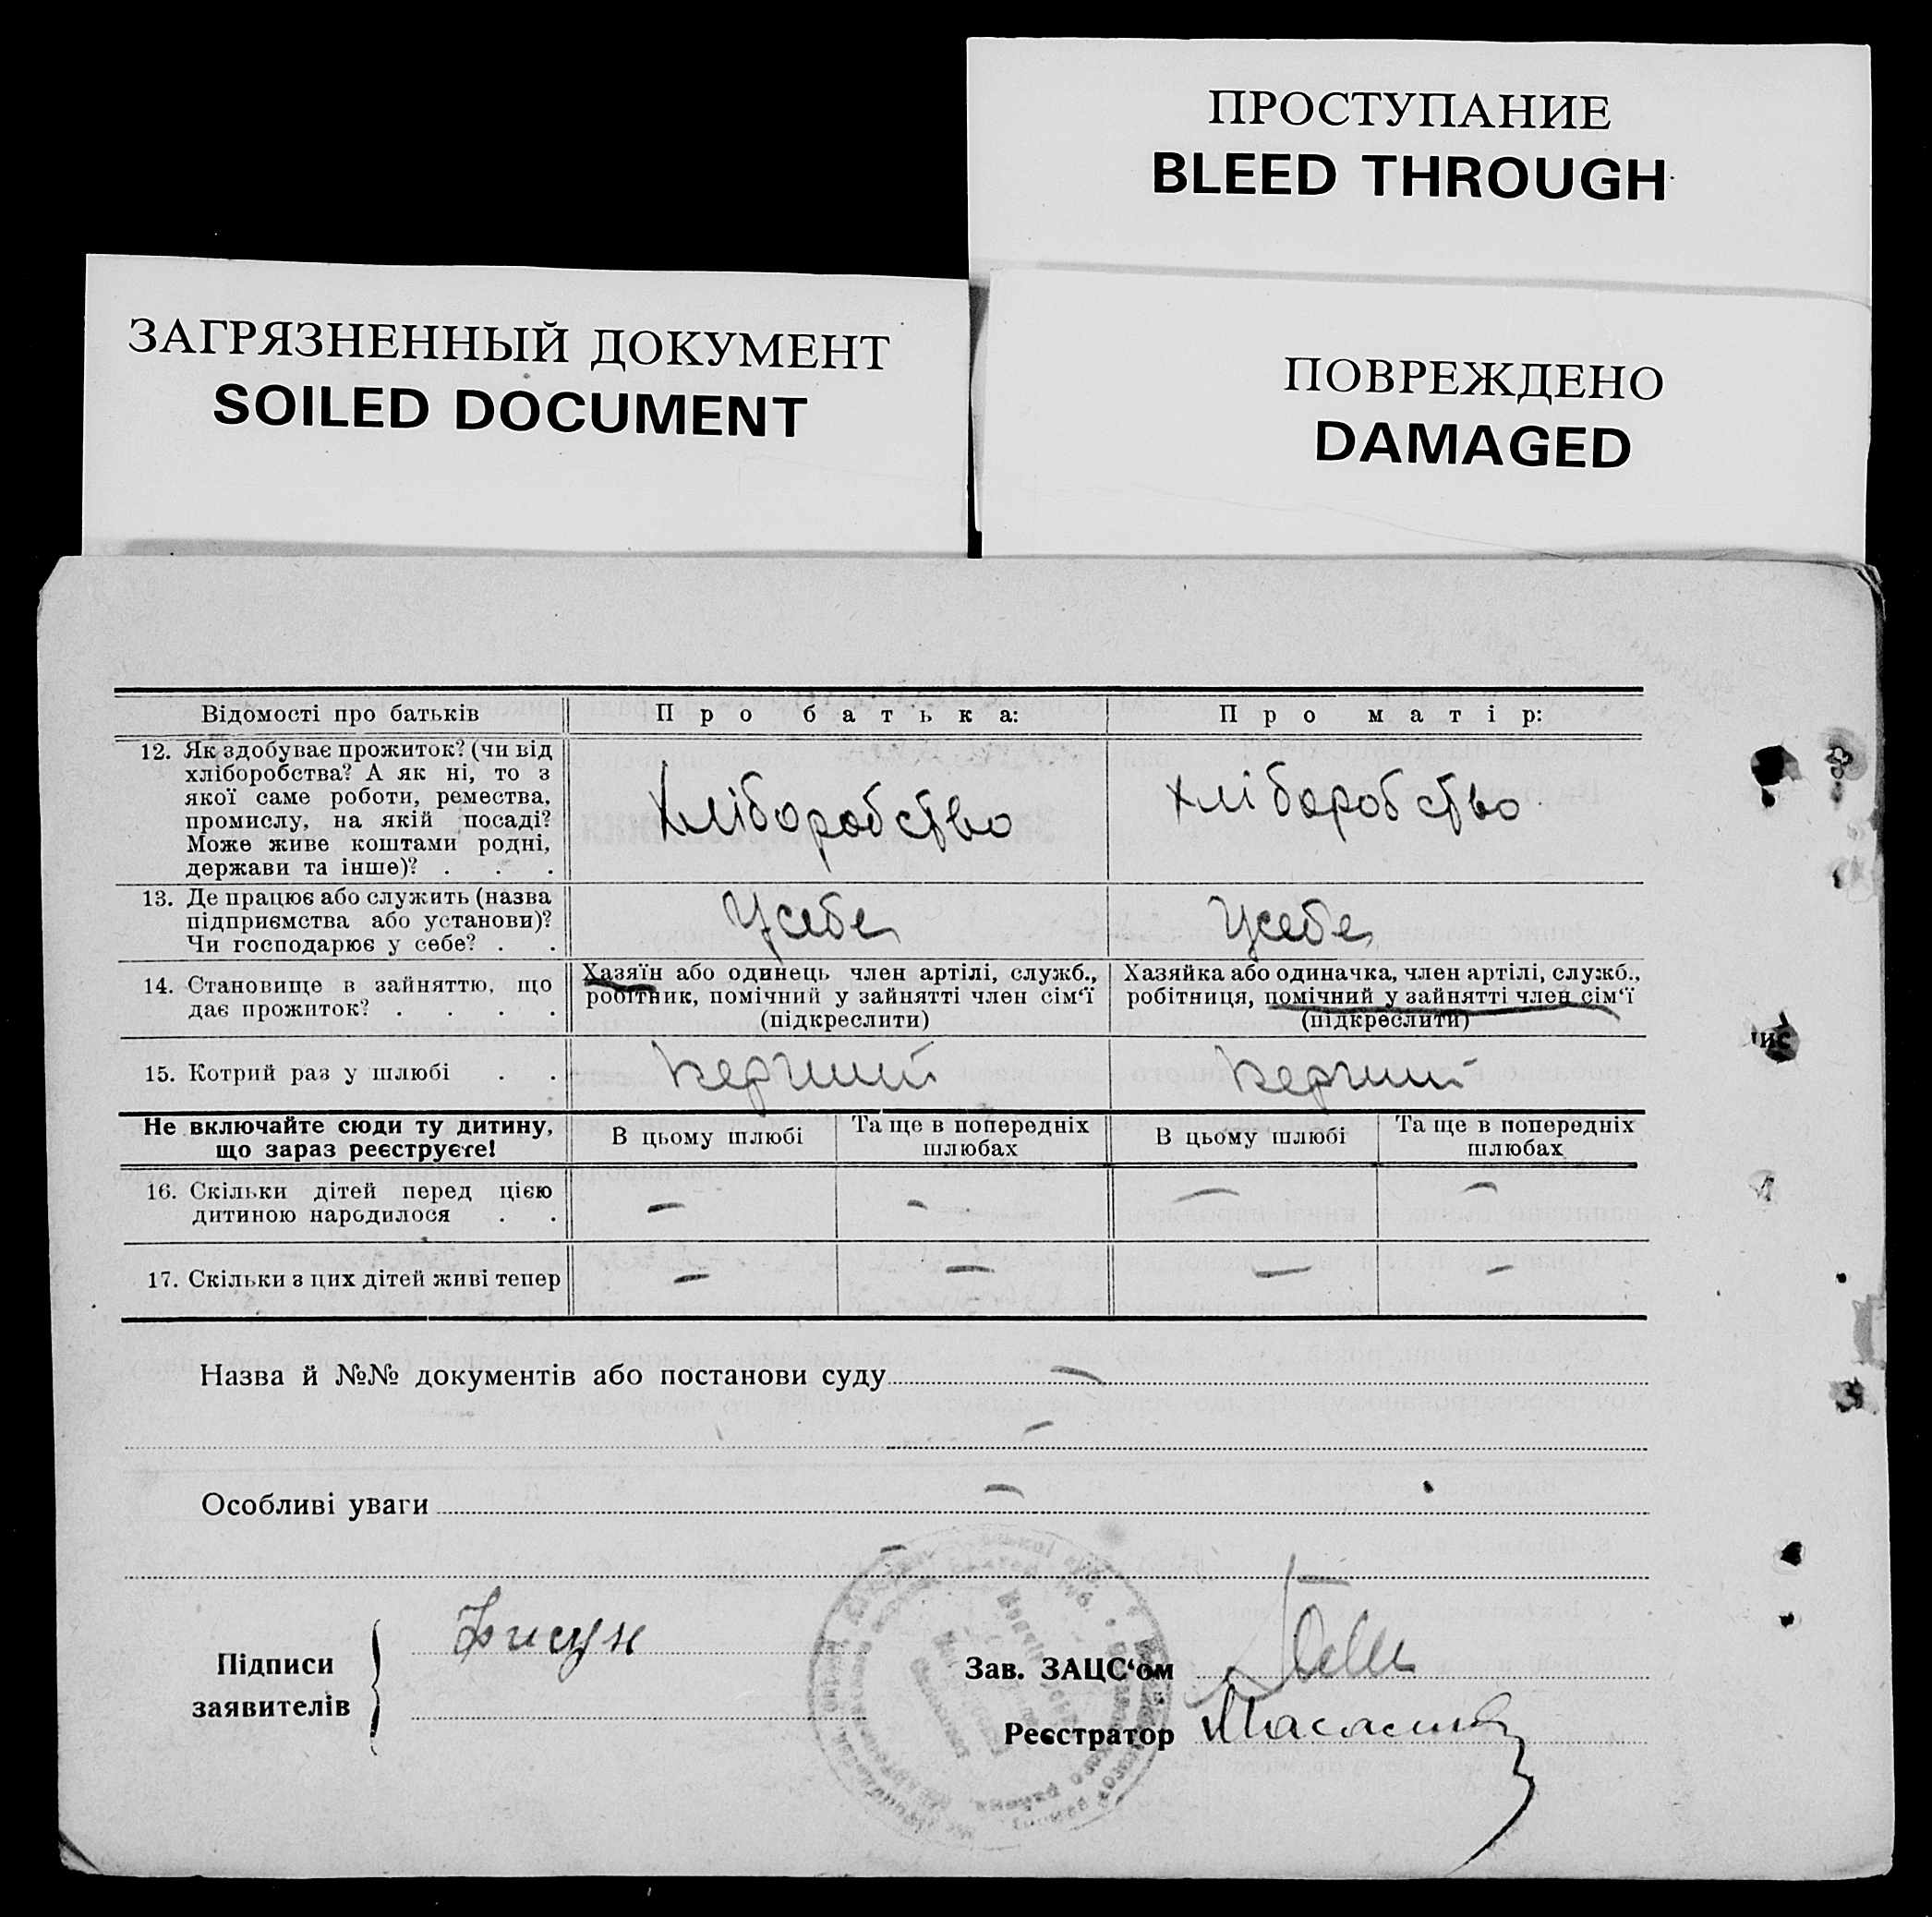 ПРОСТУПАНИЕ
BLEED THROUGH
ЗАГРЯЗНЕННЫЙ ДОКУМЕНТ
SOILED DOCUMENT
ПОВРЕЖДЕНО
DAMAGED
Відомості про батьків
Про батька:
Про матір:
12. Як здобуває прожиток? (чи від
хліборобства? А як ні, то з
якої саме роботи, ремества,
промислу, на якій посаді?
Може живе коштами родні,
держави та інше)? . . .
Хліборобство
Хліборобство
13. Де працює або служить (назва
підприємства або установи)?
Чи господарює у себе? . .
У себе
У себе
14. Становище в зайняттю, що
дає прожиток? . . . .
Хазяїн або одинець член артілі, служб.,
робітник, помічний у зайнятті член сім'ї
(підкреслити)
Хазяйка або одиначка, член артілі, служб.,
робітниця, помічний у зайнятті член сім'ї
(підкреслити)
15. Котрий раз у шлюбі . .
перший
перший
Не включайте сюди ту дитину,
що зараз реєструєте!
В цьому шлюбі
Та ще в попередніх
шлюбах
В цьому шлюбі
Та ще в попередніх
шлюбах
16. Скільки дітей перед цією
дитиною народилося . .
— — — —
17. Скільки з цих дітей живі тепер
— — — —
Назва й №№ документів або постанови суду —
—
Особливі уваги —
—
Підписи
заявителів
Зав. ЗАЦС'ом
Реєстратор